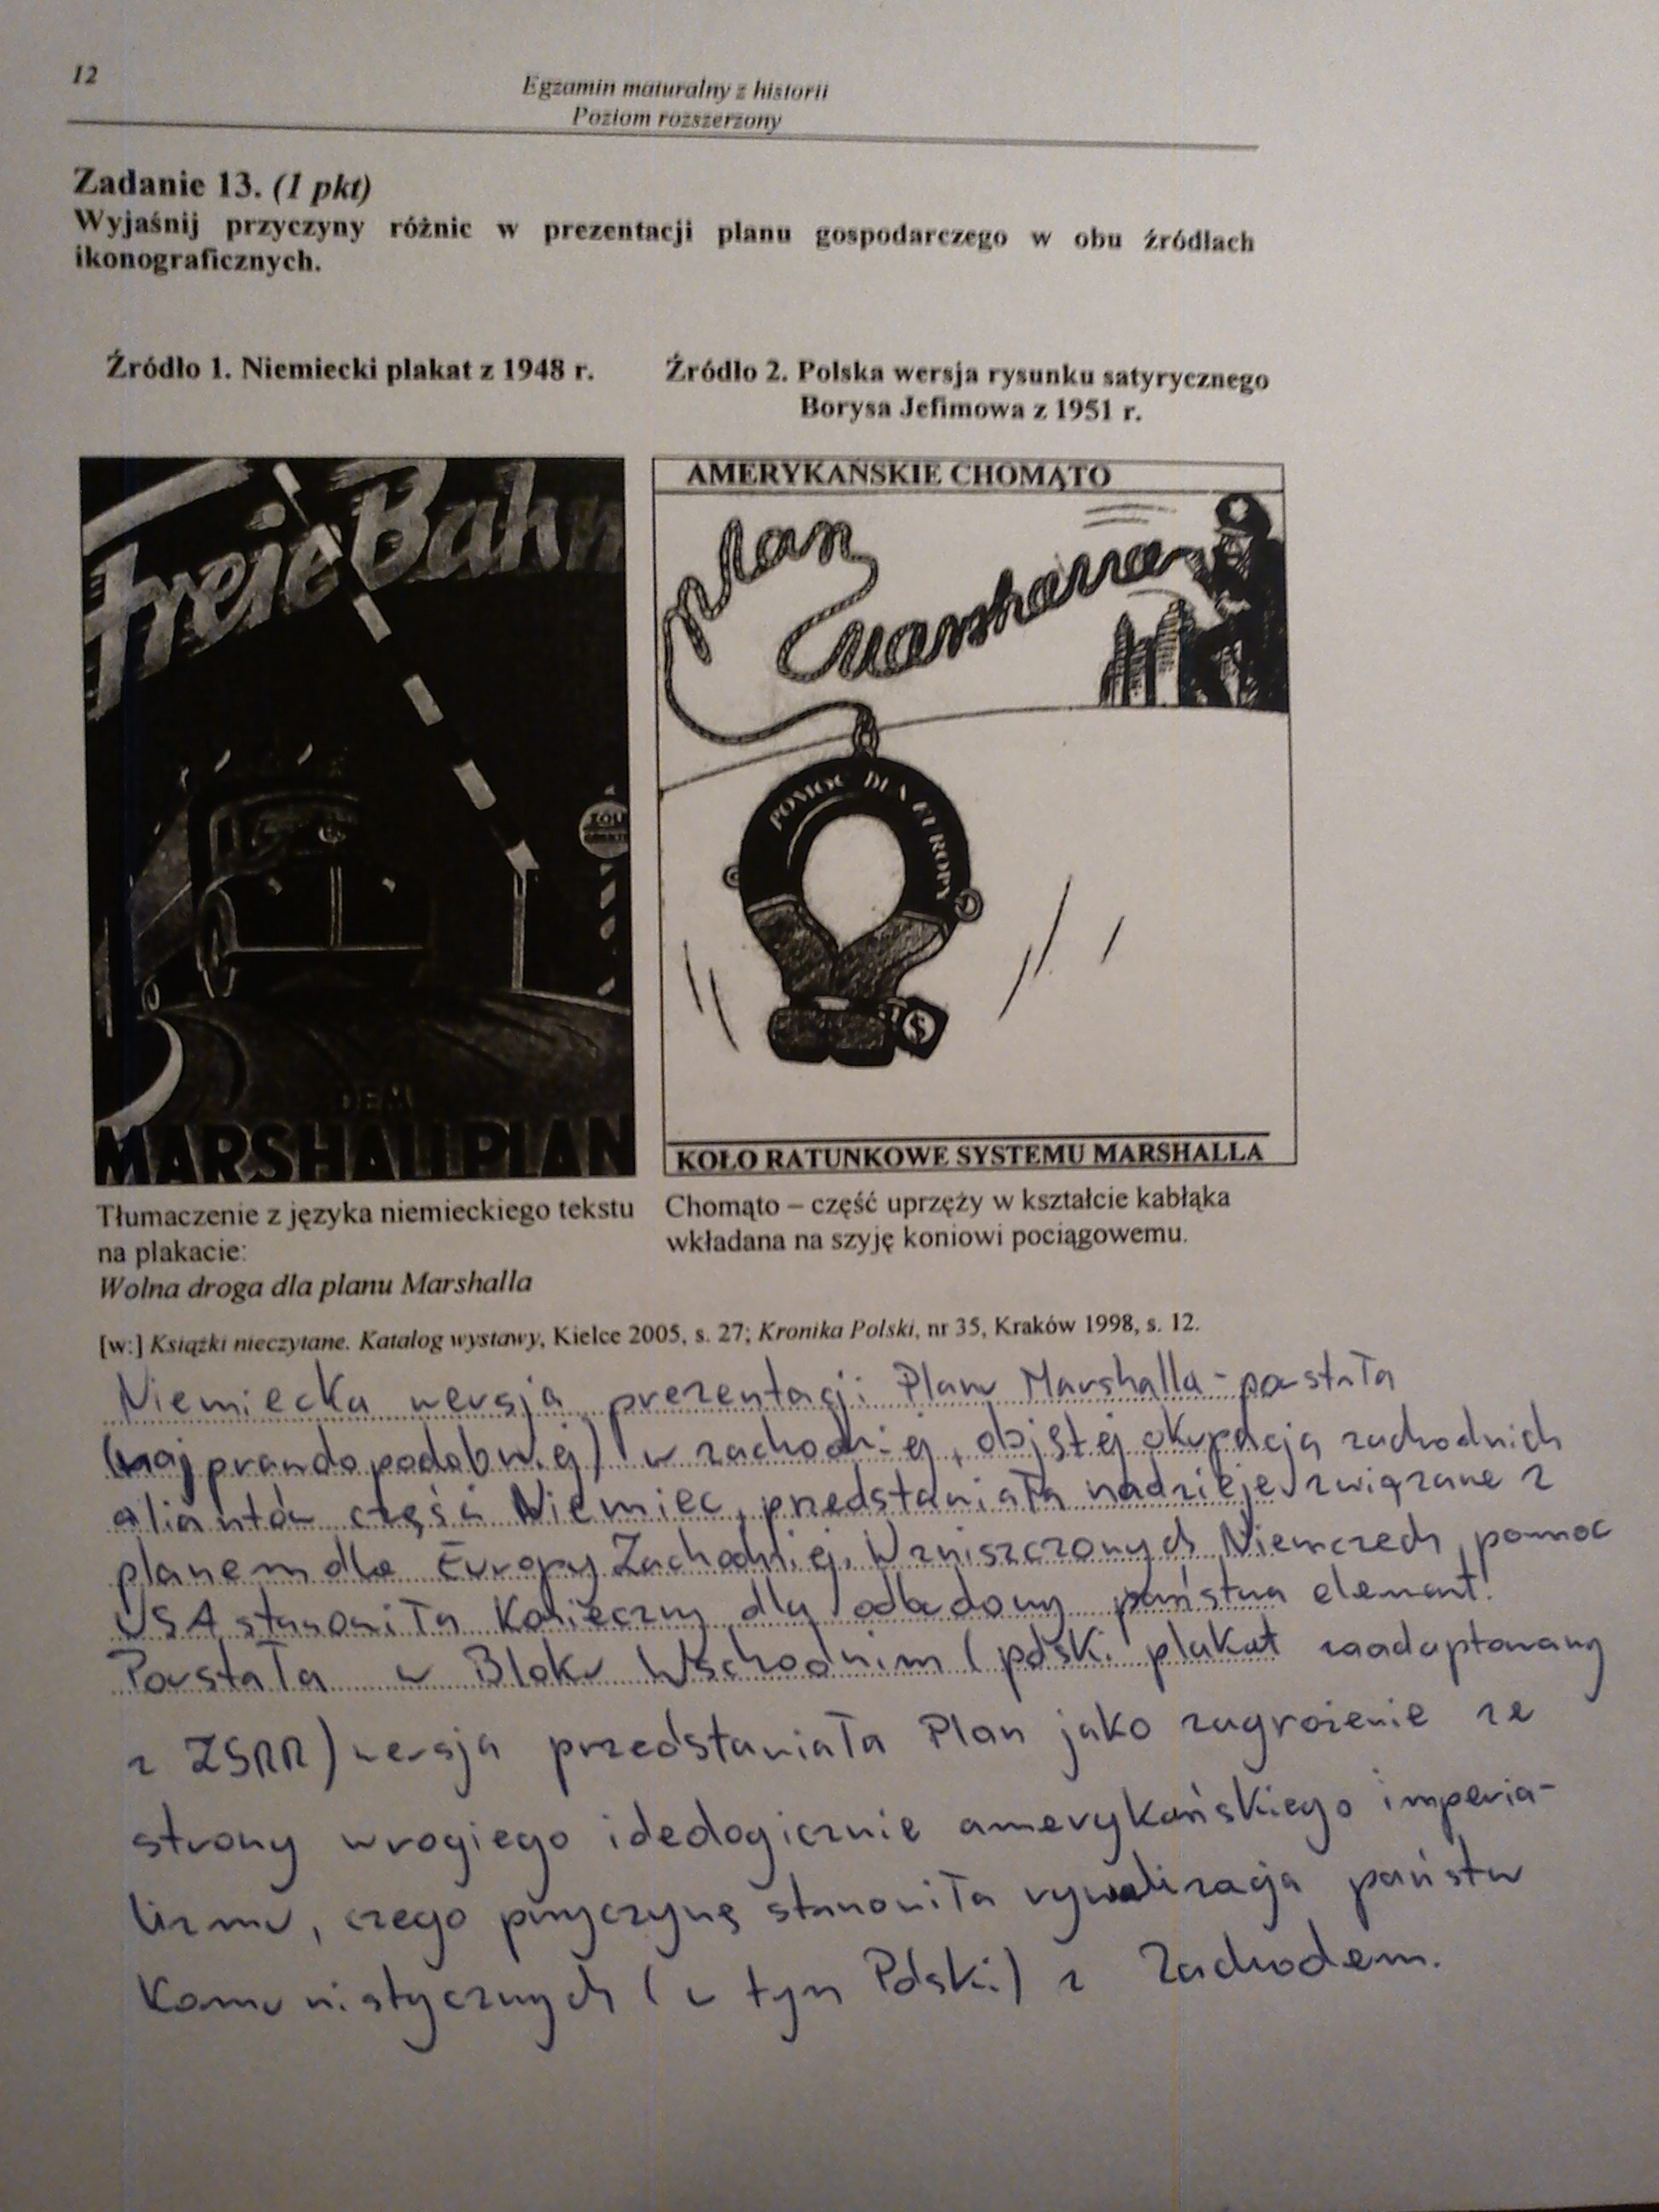 12
Egzamin maturalny z historii
Poziom rozszerzony
Zadanie 13. (1 pkt)
Wyjaśnij przyczyny różnic w prezentacji planu gospodarczego w obu źródłach
ikonograficznych.
Źródło 1. Niemiecki plakat z 1948 r.
Źródło 2. Polska wersja rysunku satyrycznego
Borysa Jefimowa z 1951 r.
Freie Bahn
DEM
MARSHALLPLAN
AMERYKAŃSKIE CHOMĄTO
plan
Marshalla
POMOC DLA EUROPY
$
KOŁO RATUNKOWE SYSTEMU MARSHALLA
Tłumaczenie z języka niemieckiego tekstu
na plakacie:
Wolna droga dla planu Marshalla
Chomąto – część uprzęży w kształcie kabłąka
wkładana na szyję koniowi pociągowemu.
[w:] Książki nieczytane. Katalog wystawy, Kielce 2005, s. 27; Kronika Polski, nr 35, Kraków 1998, s. 12.
Niemiecka wersja prezentacji Planu Marshalla - powstała
(najprawdopodobniej) w zachodniej, objętej okupacją zachodnich
aliantów części Niemiec, przedstawiała nadzieje związane z
planem dla Europy Zachodniej. W zniszczonych Niemczech pomoc
USA stanowiła konieczny dla odbudowy państwa element.
Powstała w Bloku Wschodnim (polski plakat zaadaptowany
z ZSRR) wersja przedstawiała Plan jako zagrożenie ze
strony wrogiego ideologicznie amerykańskiego imperia-
lizmu, czego przyczynę stanowiła rywalizacja państw
komunistycznych (w tym Polski) z Zachodem.